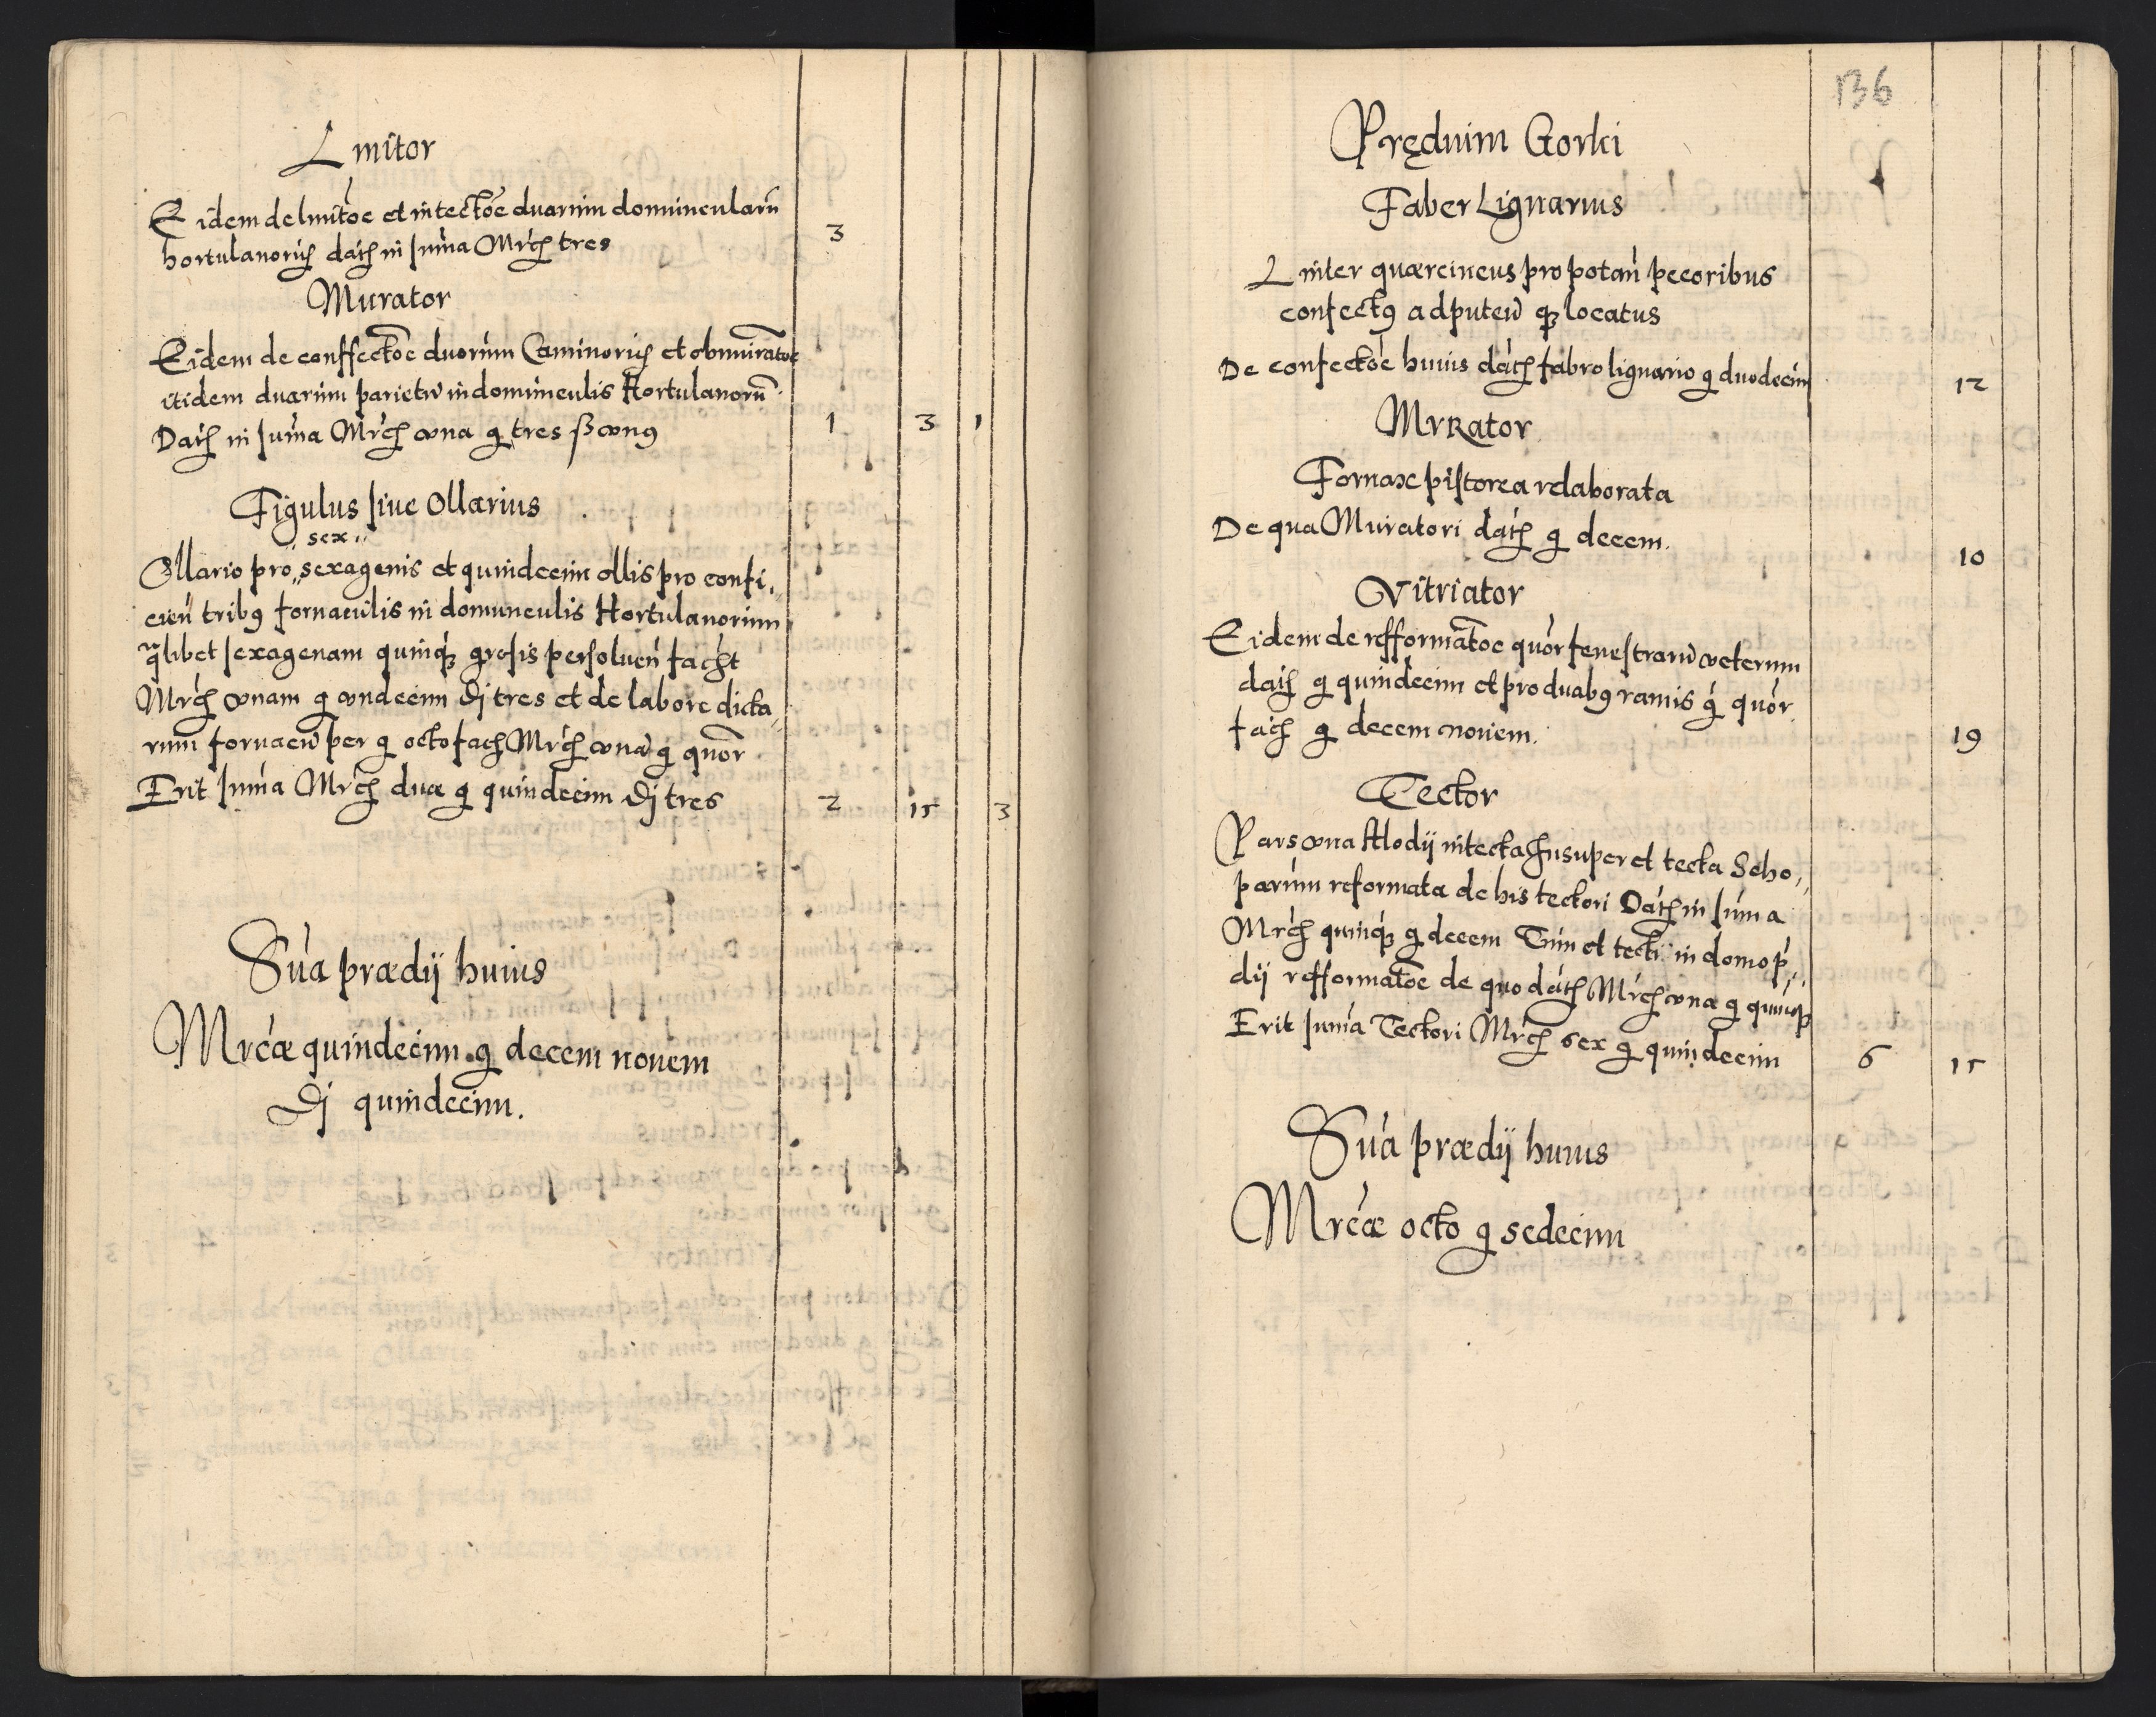 Lmitor
Eidem de lmitõe et intectõe duarum domuncularũ
hortulanorũ datҙ in sum̃a Mrcҙ tres 3
Murator
Eidem de conffectõe duorum Caminorũ et obmuratõe
itidem duarum parietũ in domunculis Hortulanorũ
Datҙ in sum̃a Mrcҙ vna g tres ß vnꝰ 1 3 1
Figulus siue Ollarius
sex
Ollario pro sexagenis et quindecim ollis pro confi,
cien̄ tribꝰ fornaculis in domunculis Hortulanorum
q̃libet sexagenam quinqꝫ grosis persoluen̄ facĩt
Mrcҙ vnam g vndecim dj tres et de labore dicta,
rum fornacũ per g octo facҙ Mrcҙ vnã g quõr
Erit sum̃a Mrcҙ duæ g quindecim dj tres 2 15 3
Sũa prædij huius
Mrcæ quindecim g decem nouem
dj quindecim.
136
Prędium Gorki
Faber Lignarius
Linter quærcineus pro potañ pecoribus
confectꝰ ad puteũ qꝫ locatus
De confectõe huius datҙ fabro lignario g duodecim 12
MVRator
Fornax pistorea relaborata
De qua Muratori datҙ g decem. 10
Vitriator
Eidem de refformatõe quõr fenestrarũ veterum
datҙ g quindecim et pro duabꝰ ramis g quõr
facҙ g decem nouem. 19
Tector
Pars vna Alodij intecta Insuper et tecta Scho,
parum reformata de his tectori Datҙ in sum̃a
Mrcҙ quinqꝫ g decem Tum et tecti in domo p̃,
dij refformatõe de quo datҙ Mrcҙ vna g quinqꝫ
Erit sum̃a Tectori Mrcҙ sex g quindecim 6 15
Sũa prædij huius
Mrcæ octo g sedecim